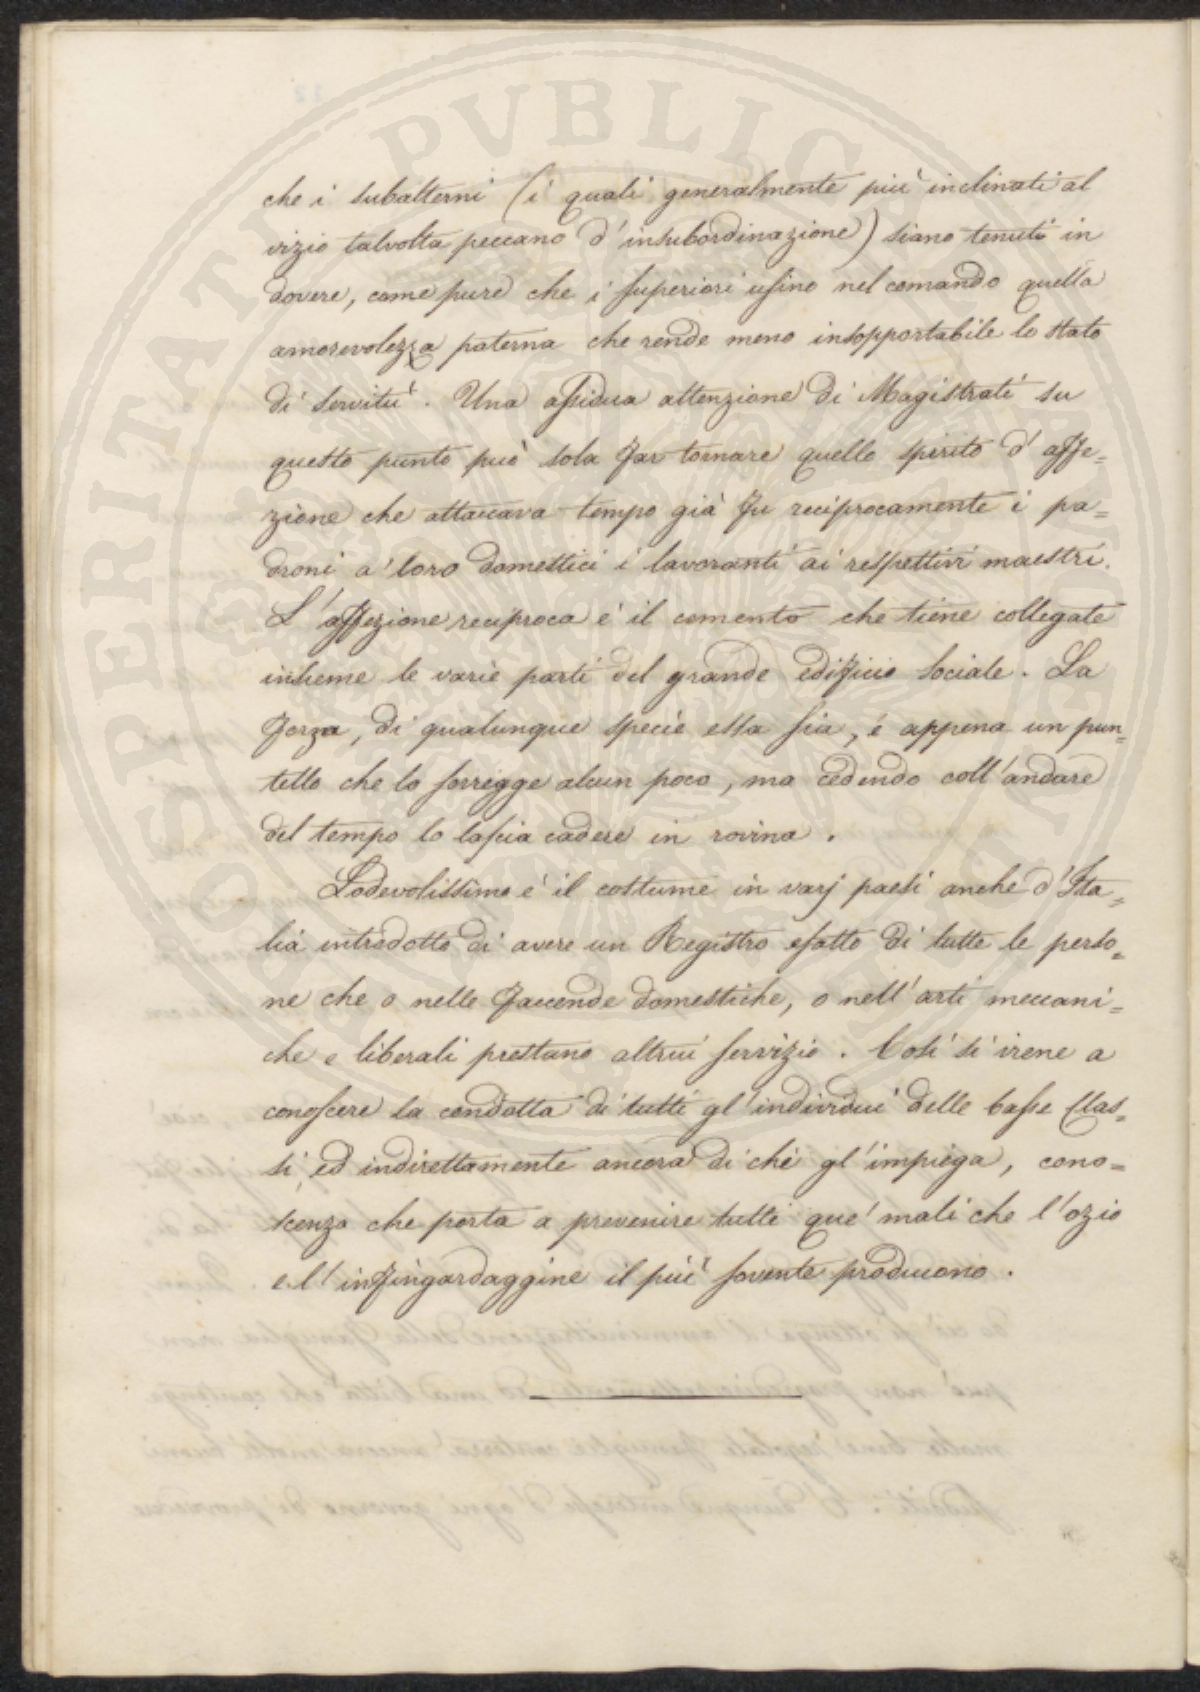 che i subalterni (i quali generalmente più inclinati al
vizio talvolta peccano d'insubordinazione) siano tenuti in
dovere, come pure che i superiori usino nel comando quella
amorevolezza paterna che rende meno insopportabile lo stato
di servitù. Una assidua attenzione di Magistrati su
questo punto può sola far tornare quello spirito d'affe=
zione che attaccava tempo già fu reciprocamente i pa=
droni a' loro domestici i lavoranti ai respettivi maestri.
L'affezione reciproca è il cemento che tiene collegate
insieme le varie parti del grande edificio sociale. La
forza, di qualunque specie essa sia, é appena un pun=
tello che lo sorregge alcun poco, ma cedendo coll'andare
del tempo lo lascia cadere in rovina.
Lodevolissimo è il costume in varj paesi anche d'Ita=
lia introdotto di avere un Registro esatto di tutte le perso=
ne che o nelle faccende domestiche, o nell'arti meccani=
che e liberali prestano altrui servizio. Così si viene a
conoscere la condotta di tutti gl'individui delle basse Clas=
si, ed indirettamente ancora di chi gl'impiega, cono=
scenza che porta a prevenire tutti que' mali che l'ozio
e l'infingardaggine il più sovente producono.